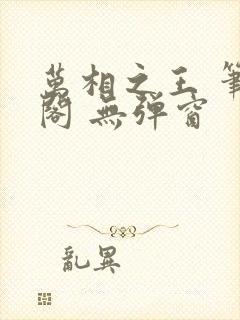 萬相之王 筆
閣 無彈窗
亂異